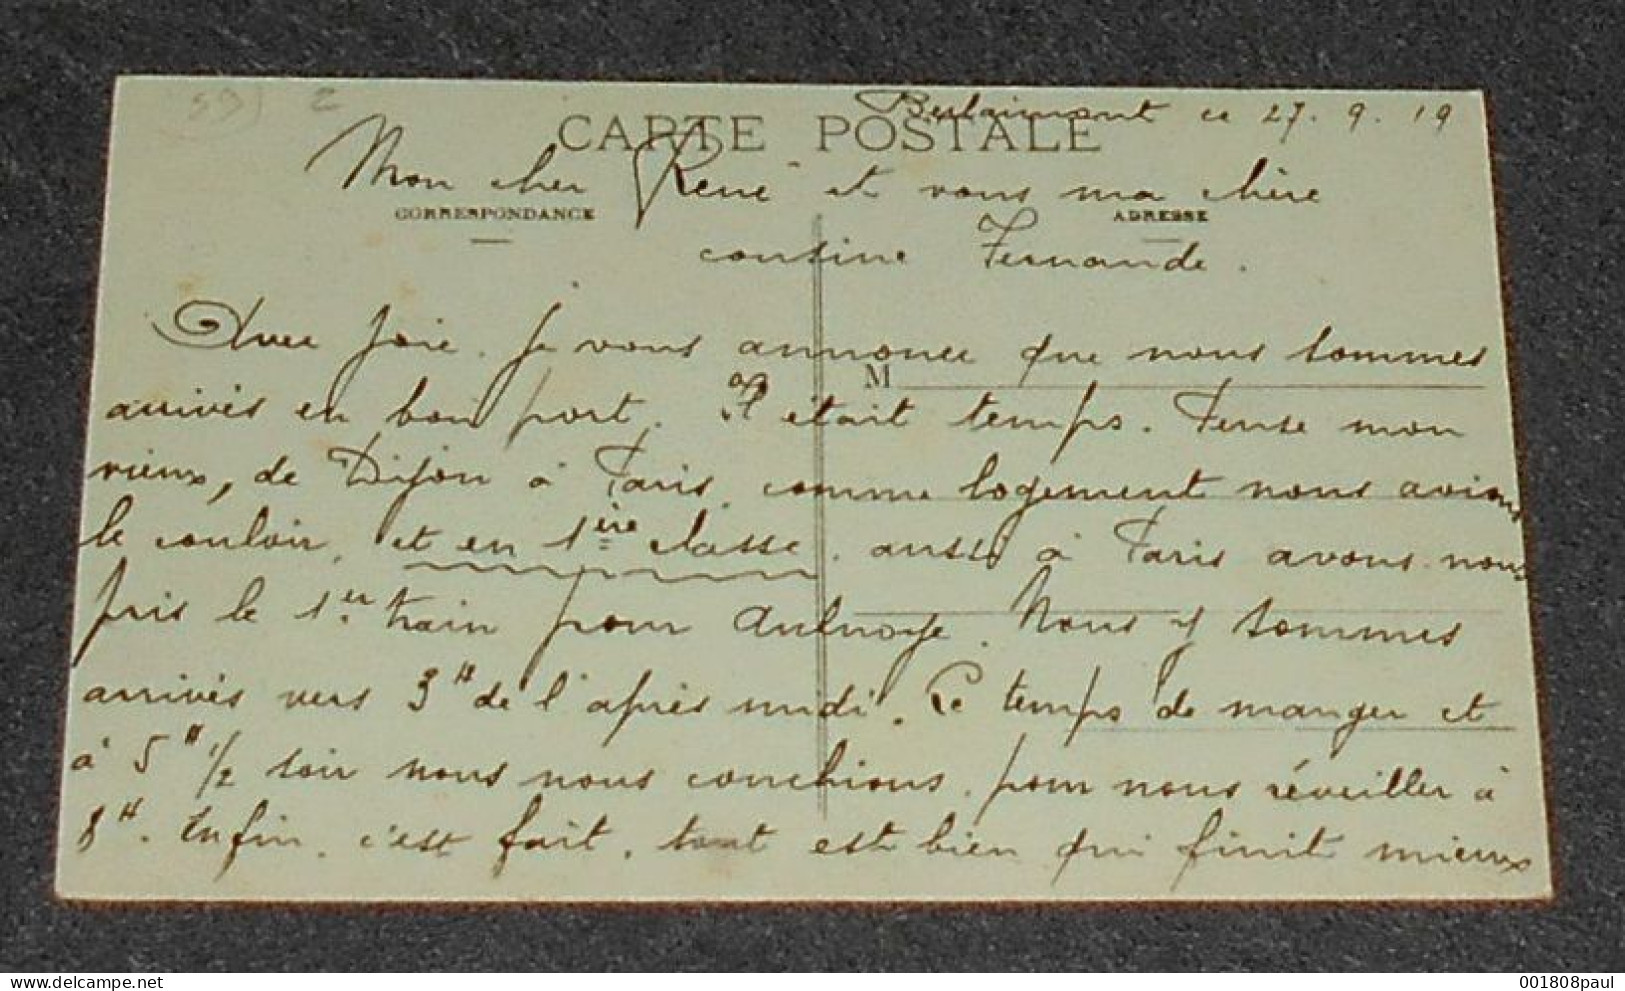 59) 2
Berlaimont ce 27. 9. 19
CARTE POSTALE
Mon cher René et vous ma chère
CORRESPONDANCE
ADRESSE
cousine Fernande.
Avec joie je vous annonce que nous sommes
M
arrivés en bon port. Il était temps. Pense mon
vieux, de Dijon à Paris, comme logement nous avions
le couloir, et en 1ère classe. aussi à Paris avons-nous
pris le 1er train pour Aulnoye. Nous y sommes
arrivés vers 3H de l'après midi. Le temps de manger et
à 5H 1/2 soir nous nous couchions, pour nous réveiller à
8H. Enfin, c'est fait, tout est bien qui finit mieux
001808paul